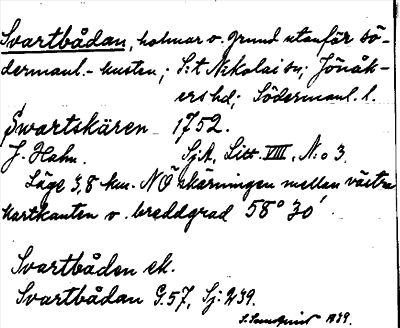 Svartbådan, holmar o. grund utanför Sö-
dermanl.-kusten; S:t Nikolai sn; Jönåk-
ers hd; Södermanl. l.
Swartskären 1752.
J. Hahn. SjA, Litt. VIII, N:o 3.
Läge 3,8 km. NÖ skärningen mellan västra
kartkanten o. breddgrad 58° 30′.
Svartbåden ek.
Svartbådan G.57, Sj: 239.
1939.